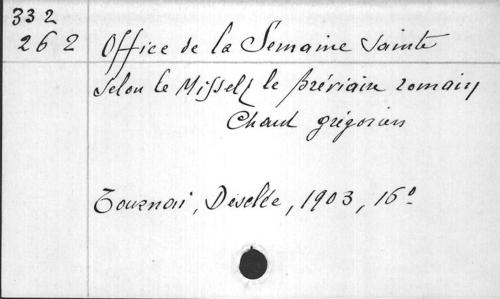 332
262 Office de la Semaine Sainte
selon le Missel & le Bréviaire romain
Chant grégorien
Tournai, Desclée, 1903, 16°